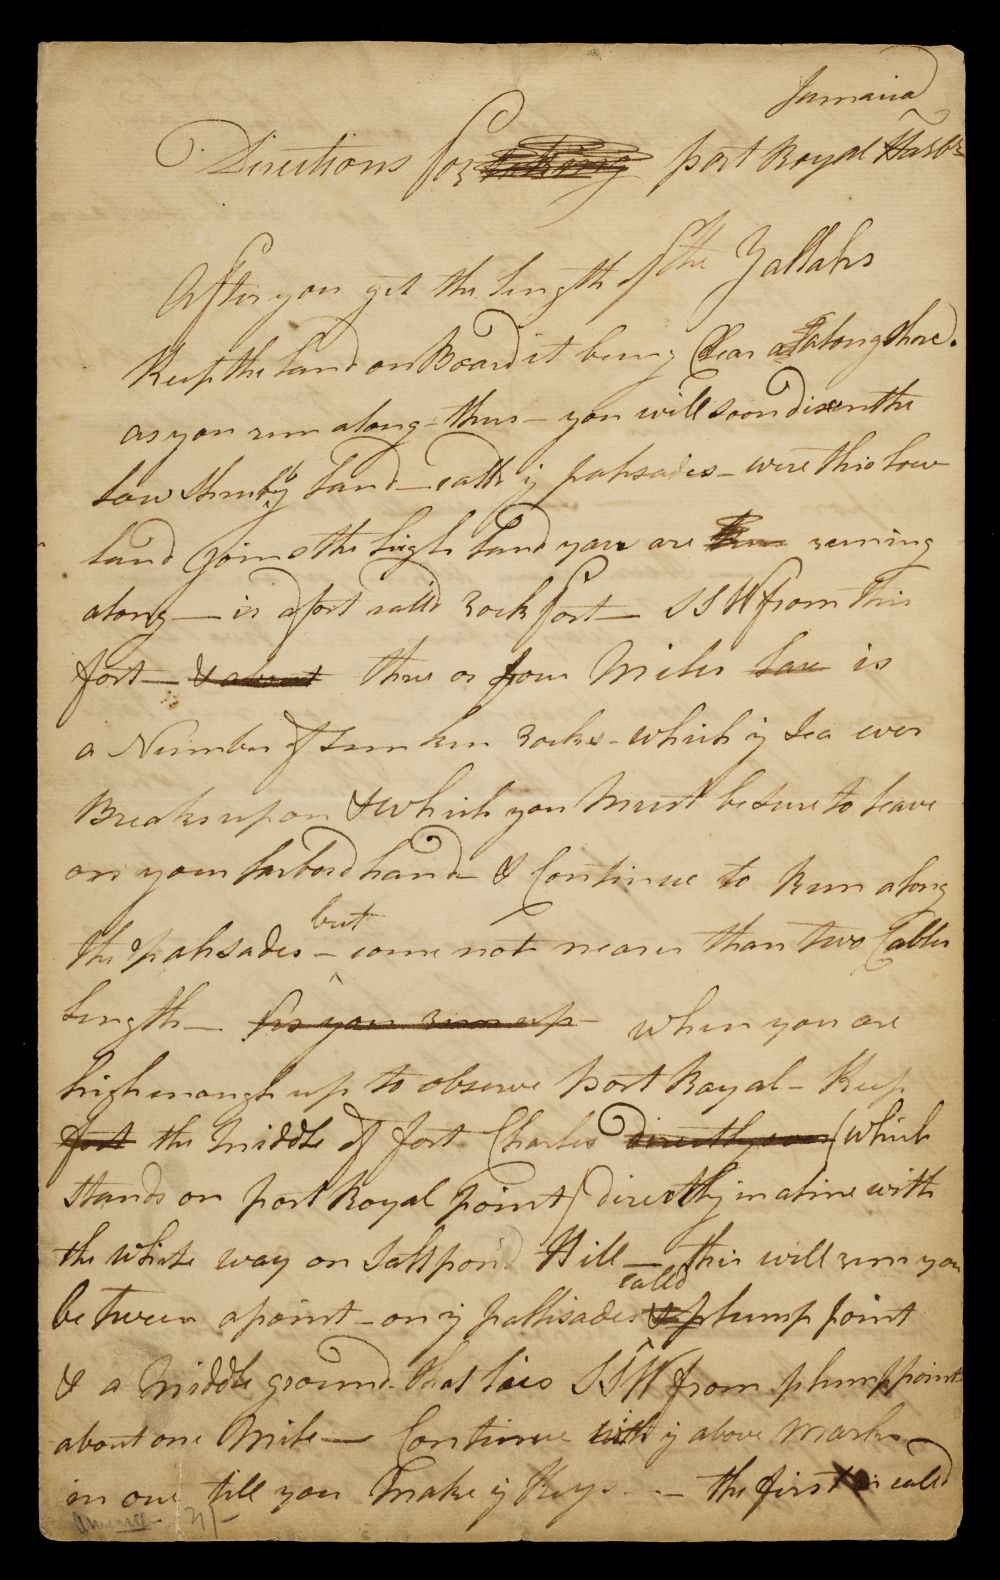 Jamaica
Directions for port Royal Harbr
After you get the length of the Yallahs
Keep the land on Board it being Clear all along shore.
as you run along thus you will soon discern the
low shrubby land - calld ye palisades - were this low
land joins the high land you are running
along — is a fort calld rock fort — SSW from this
fort — & about three or four Miles is
a Number of sunken rocks - which ye Sea ever
Breaks upon & which you Must be sure to leave
on your larbord hand & Continue to Run along
the palisades - but come not nearer than two Cables
length — As you run up - when you are
high enough up to observe port Royal - Keep
fort the Middle of fort Charles directly over (which
stands on port Royal point) directly in a line with
the white way on Saltpond Hill — this will run you
between a point - on ye pallisades called & plump point
& a Middle ground that lies SSW from plump point
about one Mile — Continue with ye above Marks
in one till you Make ye Keys - - the first is called